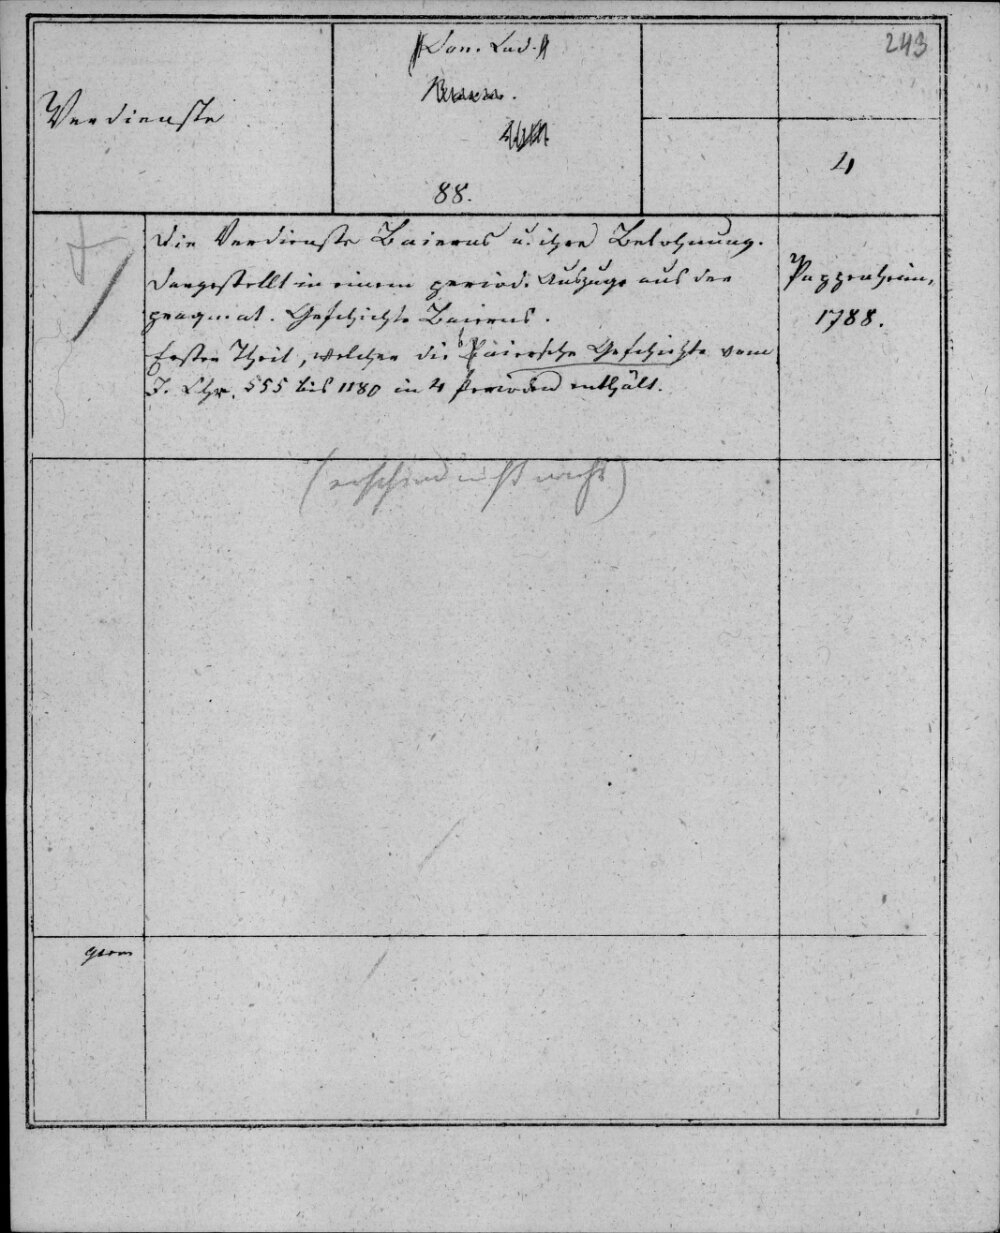 243
Verdienste
Bavar.
4
88.
Die Verdienste Baierns u. ihre Belohnung.
Dargestellt in einem period. Auszuge aus der
pragmat. Geschichte Baierns.
Erster Theil, welcher die Baiersche Geschichte vom
J. Chr. 555 bis 1180 in 4 Perioden enthält.
Pappenheim,
1788.
(erschien nicht mehr)
germ